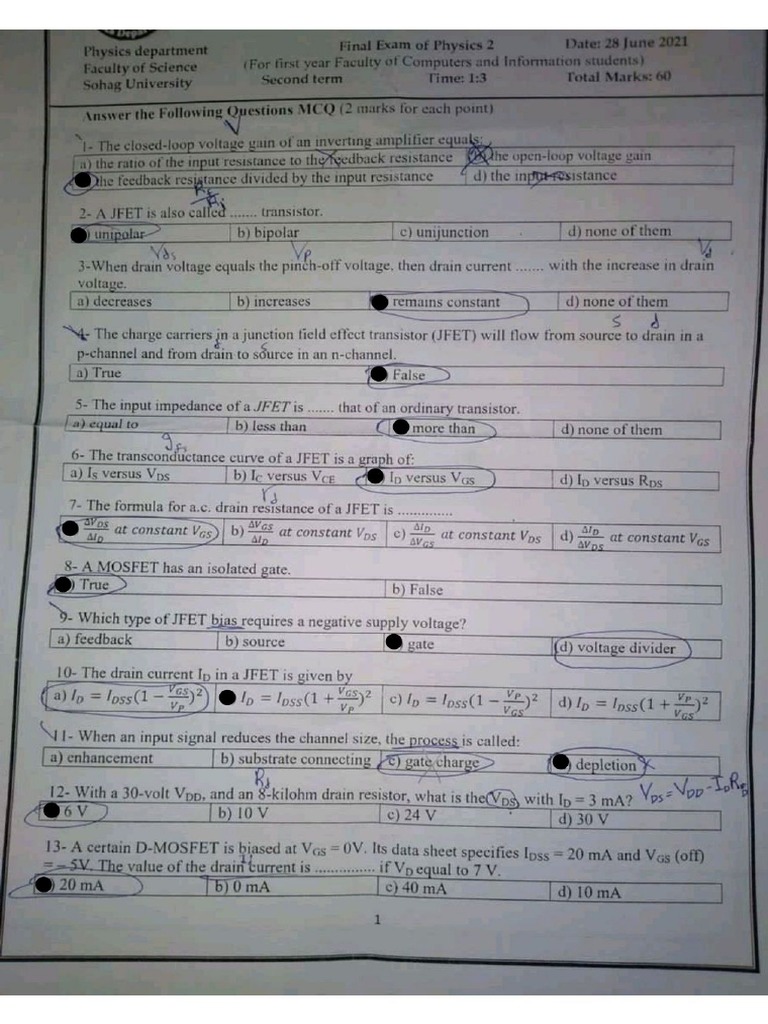 Physics department Final Exam of Physics 2 Date: 28 June 2021
Faculty of Science (For first year Faculty of Computers and Information students)
Sohag University Second term Time: 1:3 Total Marks: 60
Answer the Following Questions MCQ (2 marks for each point)
1- The closed-loop voltage gain of an inverting amplifier equals:
a) the ratio of the input resistance to the feedback resistance the open-loop voltage gain
the feedback resistance divided by the input resistance d) the input resistance
2- A JFET is also called ....... transistor.
) unipolar b) bipolar c) unijunction d) none of them
Vds Vp Vd
3-When drain voltage equals the pinch-off voltage, then drain current ....... with the increase in drain
voltage.
a) decreases b) increases remains constant d) none of them
s d
4- The charge carriers in a junction field effect transistor (JFET) will flow from source to drain in a
p-channel and from drain to source in an n-channel.
a) True False
5- The input impedance of a JFET is ....... that of an ordinary transistor.
a) equal to b) less than more than d) none of them
6- The transconductance curve of a JFET is a graph of:
a) IS versus VDS b) IC versus VCE ID versus VGS d) ID versus RDS
rd
7- The formula for a.c. drain resistance of a JFET is ..............
ΔVDS/ΔID at constant VGS) b) ΔVGS/ΔID at constant VDS c) ΔID/ΔVGS at constant VDS d) ΔID/ΔVDS at constant VGS
8- A MOSFET has an isolated gate.
) True b) False
9- Which type of JFET bias requires a negative supply voltage?
a) feedback b) source gate (d) voltage divider
10- The drain current ID in a JFET is given by
a) ID = IDSS(1 − VGS/VP)² ID = IDSS(1 + VGS/VP)² c) ID = IDSS(1 − VP/VGS)² d) ID = IDSS(1 + VP/VGS)²
11- When an input signal reduces the channel size, the process is called:
a) enhancement b) substrate connecting c) gate charge ) depletion
Rd
12- With a 30-volt VDD, and an 8-kilohm drain resistor, what is the VDS, with ID = 3 mA? VDS = VDD - IDRD
6 V b) 10 V c) 24 V d) 30 V
13- A certain D-MOSFET is biased at VGS = 0V. Its data sheet specifies IDSS = 20 mA and VGS (off)
= – 5V. The value of the drain current is .............. if VD equal to 7 V.
) 20 mA b) 0 mA c) 40 mA d) 10 mA
1